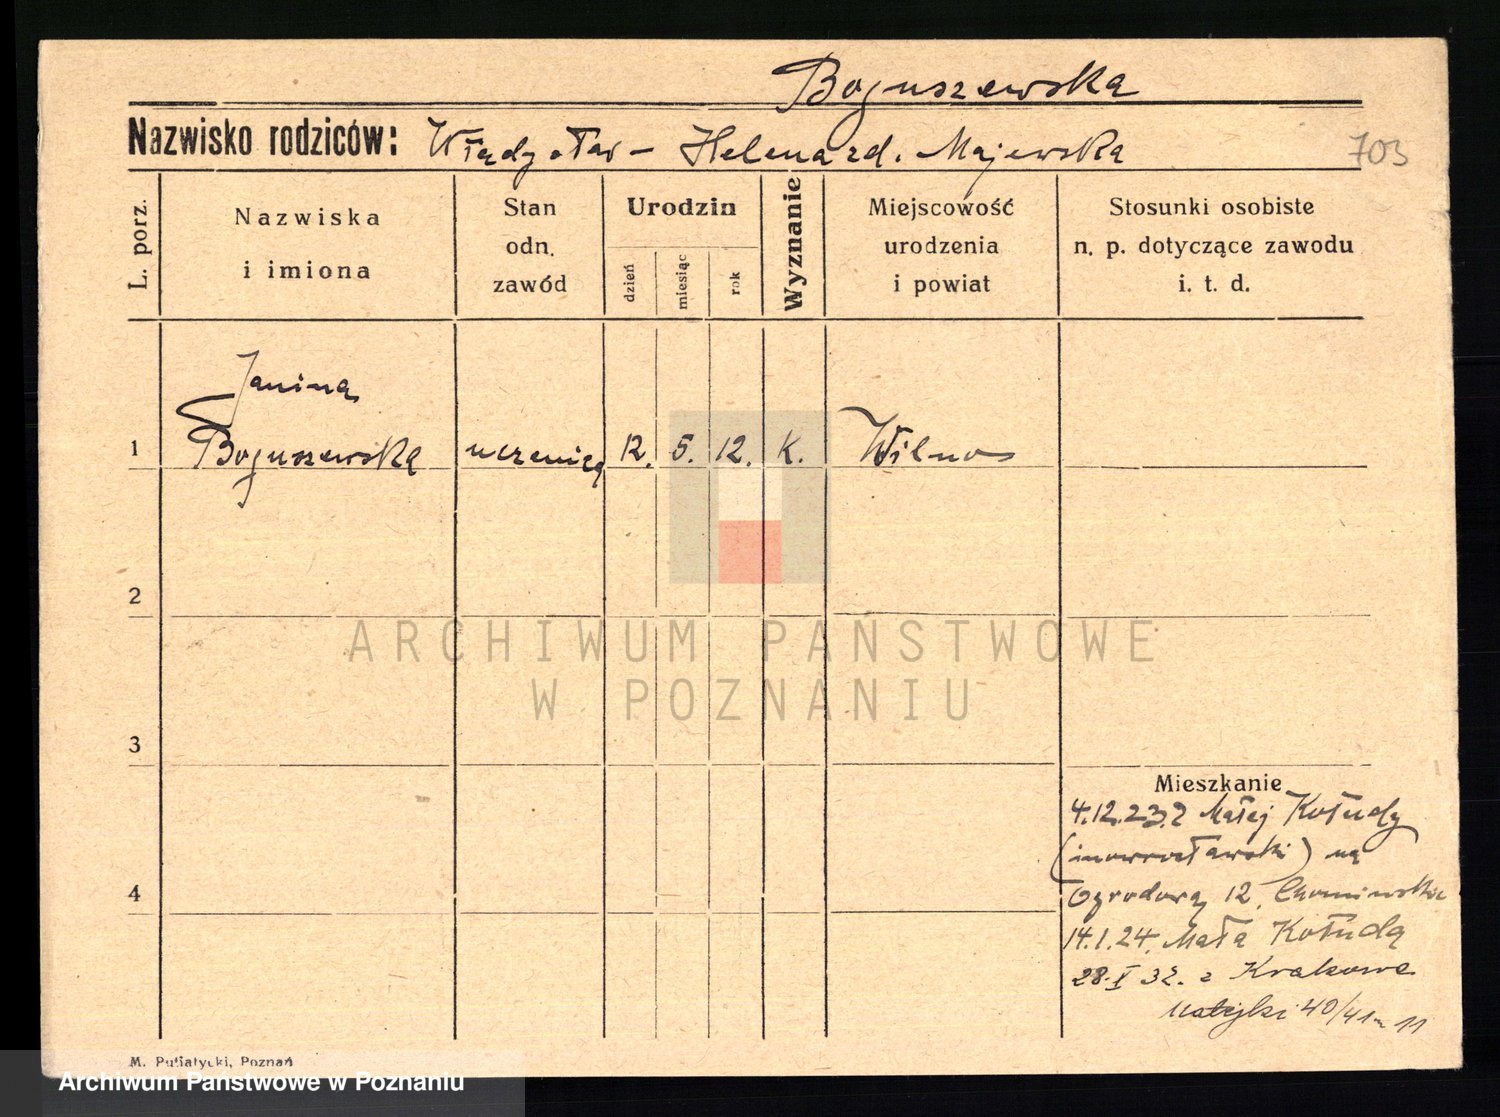 Boguszewska
Nazwisko rodziców: Władysław – Helena zd. Majewska
703
L. porz.
Nazwiska
i imiona
Stan
odn.
zawód
Urodzin
dzień
miesiąc
rok
Wyznanie
Miejscowość
urodzenia
i powiat
Stosunki osobiste
n. p. dotyczące zawodu
i. t. d.
Janina
1 Boguszewska uczenica 12. 5. 12. K. Wilno
2
ARCHIWUM PAŃSTWOWE
W POZNANIU
3
Mieszkanie
4.12.23. z Małej Kołudy
(inowrocławski) na
4
Ogrodową 12,
14.1.24. Mała Kołuda
28.X 32. z Krakowa
Matejki 40/41 m 11
M. Putiatycki, Poznań
Archiwum Państwowe w Poznaniu